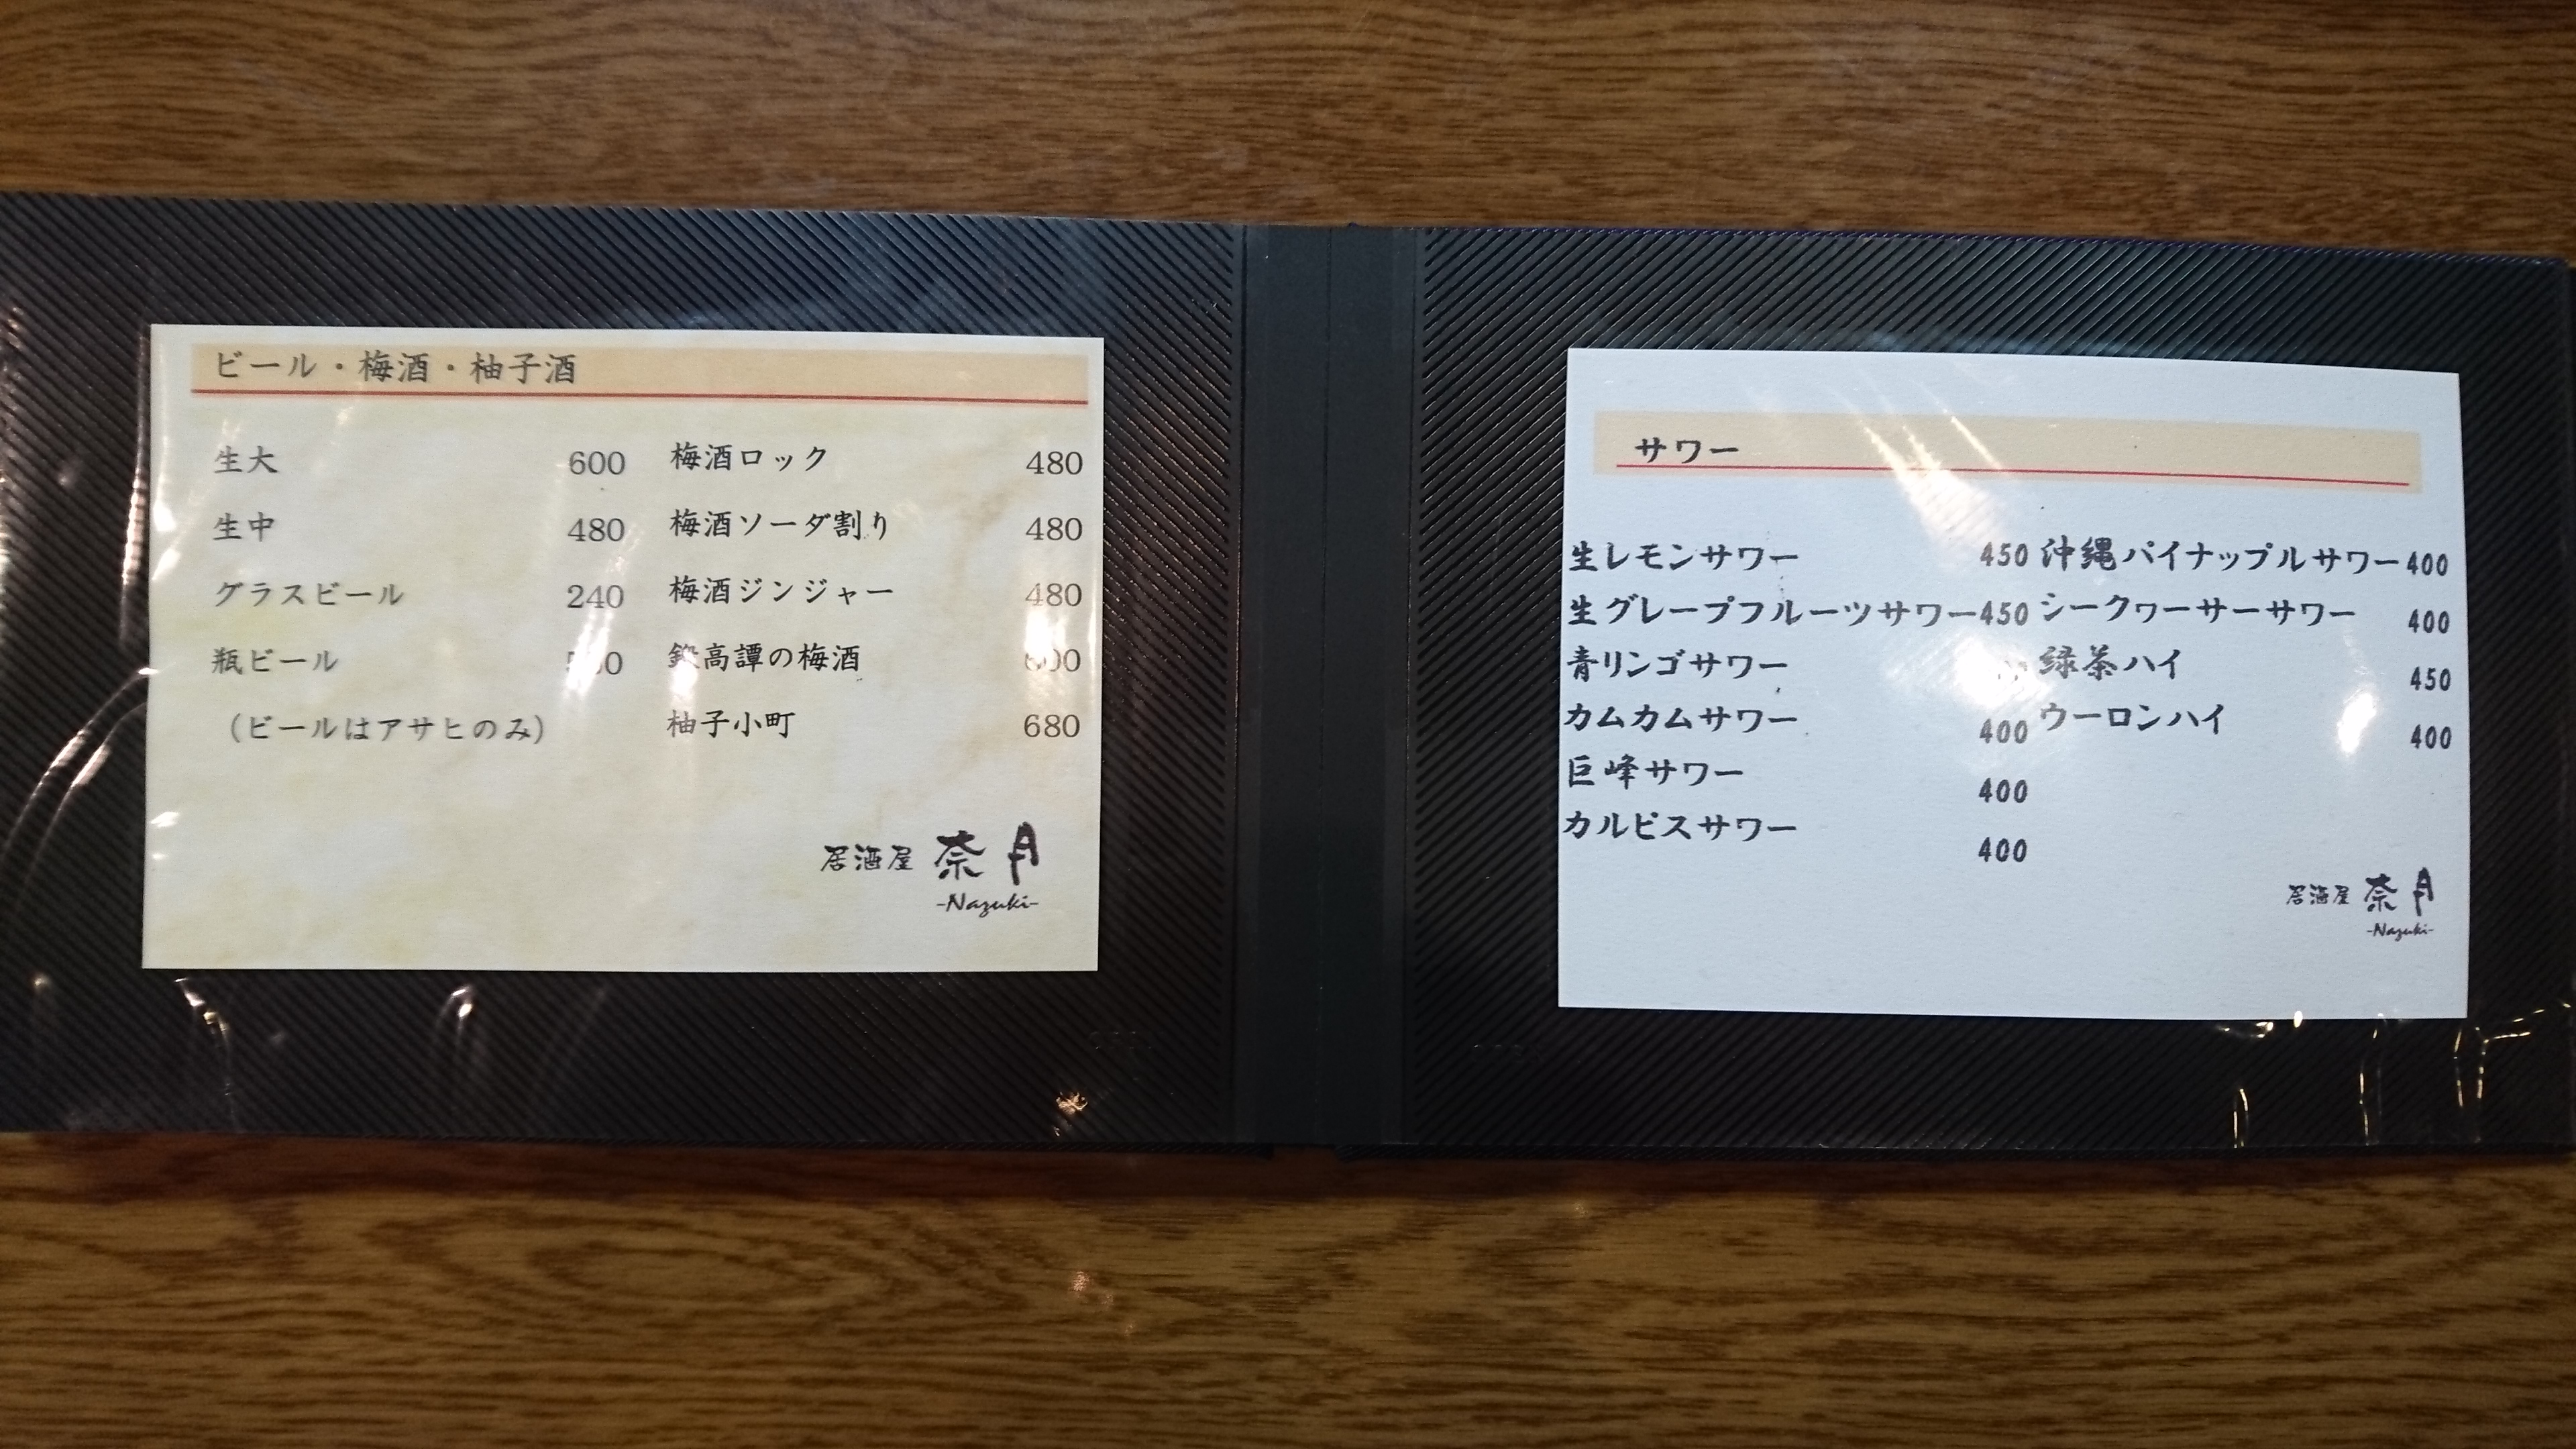 ビール・梅酒・柚子酒
生大 600
生中 480
グラスビール 240
瓶ビール
（ビールはアサヒのみ）
梅酒ロック 480
梅酒ソーダ割り 480
梅酒ジンジャー 480
鍛高譚の梅酒
柚子小町 680
居酒屋 奈月
-Nazuki-
サワー
生レモンサワー 450
生グレープフルーツサワー 450
青リンゴサワー
カムカムサワー 400
巨峰サワー 400
カルピスサワー 400
沖縄パイナップルサワー 400
シークヮーサーサワー 400
緑茶ハイ 450
ウーロンハイ 400
居酒屋 奈月
-Nazuki-